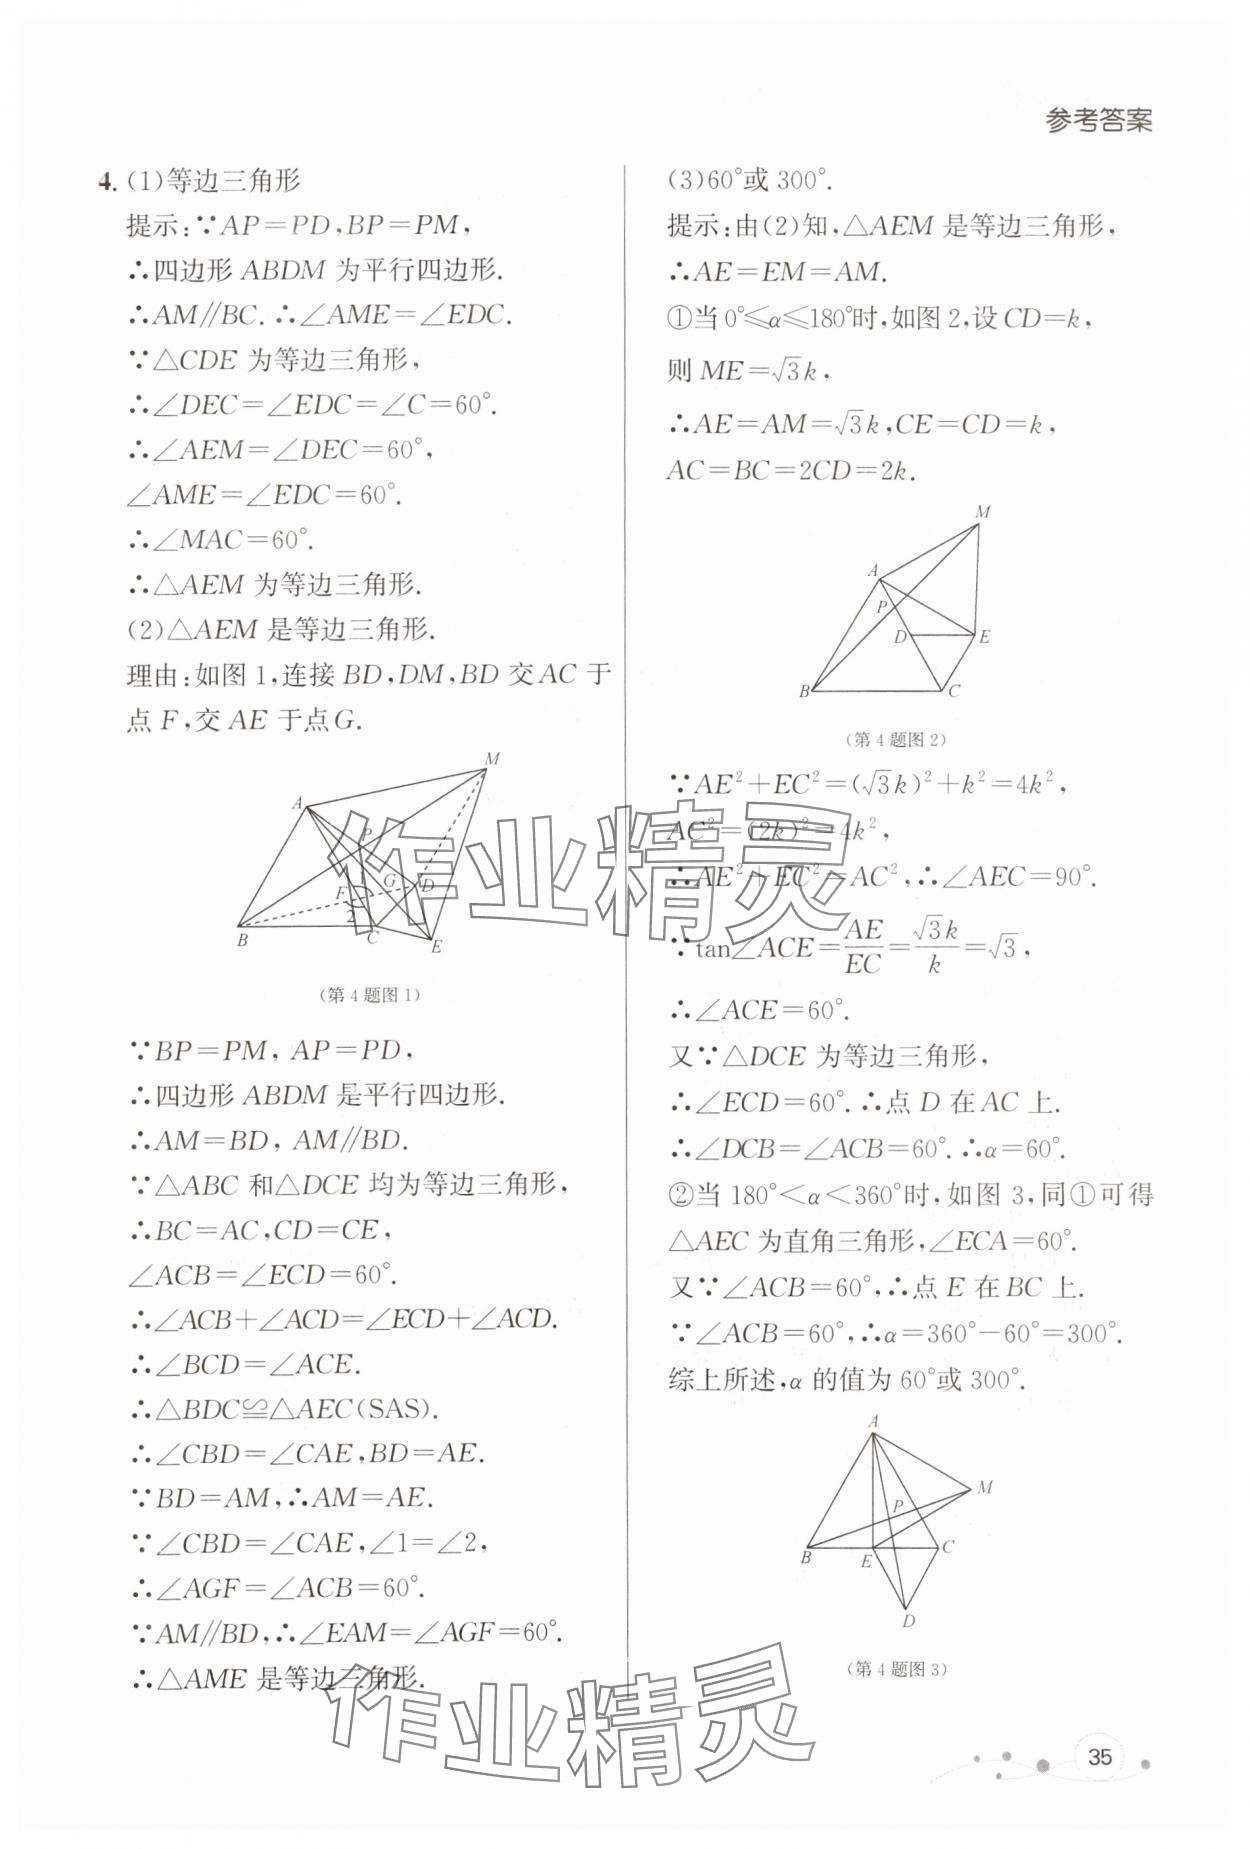 参考答案
4. (1)等边三角形
提示:∵AP=PD,BP=PM,
∴四边形 ABDM 为平行四边形.
∴AM∥BC. ∴∠AME=∠EDC.
∵△CDE 为等边三角形,
∴∠DEC=∠EDC=∠C=60°.
∴∠AEM=∠DEC=60°,
∠AME=∠EDC=60°.
∴∠MAC=60°.
∴△AEM 为等边三角形.
(2)△AEM 是等边三角形.
理由:如图 1,连接 BD,DM,BD 交 AC 于
点 F,交 AE 于点G.
M
A
P
G
D
F
1
2
B
C
E
(第 4 题图 1)
∵BP=PM, AP=PD,
∴四边形 ABDM 是平行四边形.
∴AM=BD, AM∥BD.
∵△ABC 和△DCE 均为等边三角形,
∴BC=AC,CD=CE,
∠ACB=∠ECD=60°.
∴∠ACB+∠ACD=∠ECD+∠ACD.
∴∠BCD=∠ACE.
∴△BDC≌△AEC(SAS).
∴∠CBD=∠CAE,BD=AE.
∵BD=AM,∴AM=AE.
∵∠CBD=∠CAE,∠1=∠2,
∴∠AGF=∠ACB=60°.
∵AM∥BD,∴∠EAM=∠AGF=60°.
∴△AME 是等边三角形.
(3)60°或 300°.
提示:由(2)知,△AEM 是等边三角形,
∴AE=EM=AM.
①当 0°≤α≤180°时,如图 2,设 CD=k,
则 ME=√3k,
∴AE=AM=√3k,CE=CD=k,
AC=BC=2CD=2k.
M
A
P
D
E
B
C
(第 4 题图 2)
∵AE²+EC²=(√3k)²+k²=4k²,
AC²=(2k)²=4k²,
∴AE²+EC²=AC²,∴∠AEC=90°.
∵tan∠ACE=AE/EC=√3k/k=√3,
∴∠ACE=60°.
又∵△DCE 为等边三角形,
∴∠ECD=60°. ∴点 D 在 AC 上.
∴∠DCB=∠ACB=60°. ∴α=60°.
②当 180°<α<360°时,如图 3,同①可得
△AEC 为直角三角形,∠ECA=60°.
又∵∠ACB=60°,∴点 E 在 BC 上.
∵∠ACB=60°,∴α=360°-60°=300°.
综上所述,α 的值为 60°或 300°.
A
M
P
B
E
C
D
(第 4 题图 3)
作业精灵
作业精灵
35